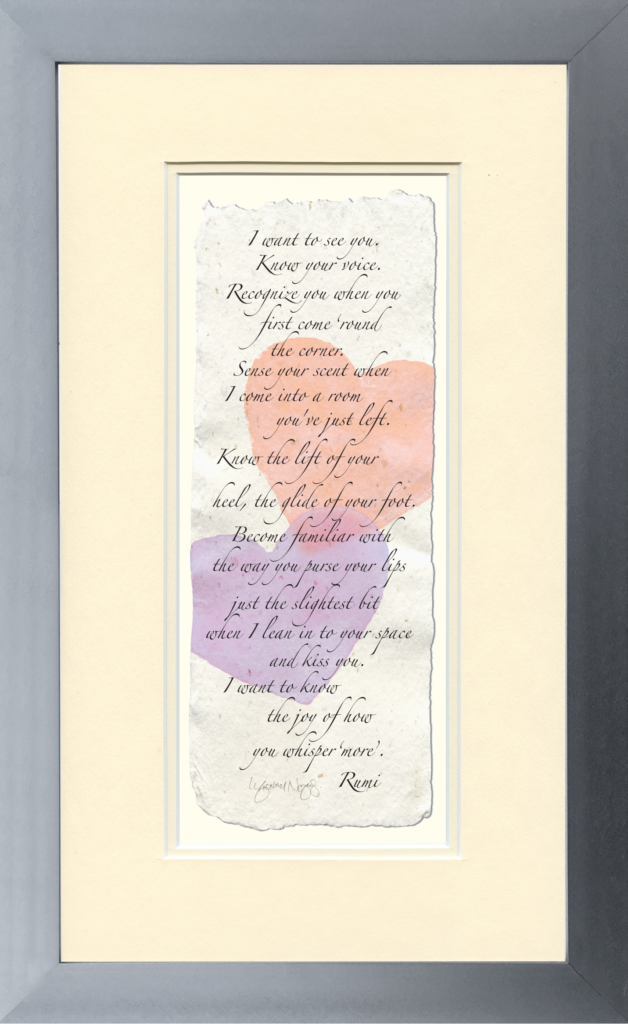 I want to see you.
Know your voice.
Recognize you when you
first come ‘round
the corner.
Sense your scent when
I come into a room
you've just left.
Know the lift of your
heel, the glide of your foot.
Become familiar with
the way you purse your lips
just the slightest bit
when I lean in to your space
and kiss you.
I want to know
the joy of how
you whisper ‘more’.
Rumi